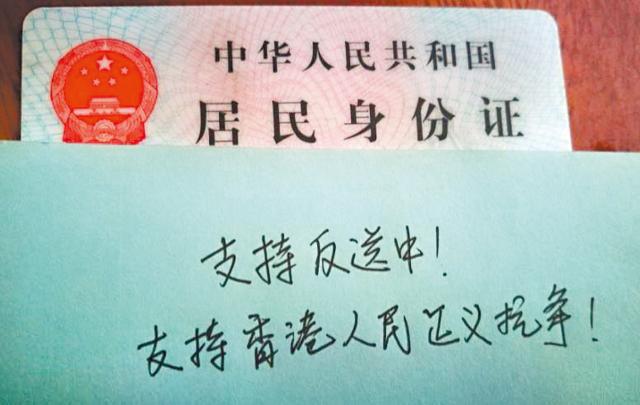 中华人民共和国
居民身份证
支持反送中!
支持香港人民正义抗争!